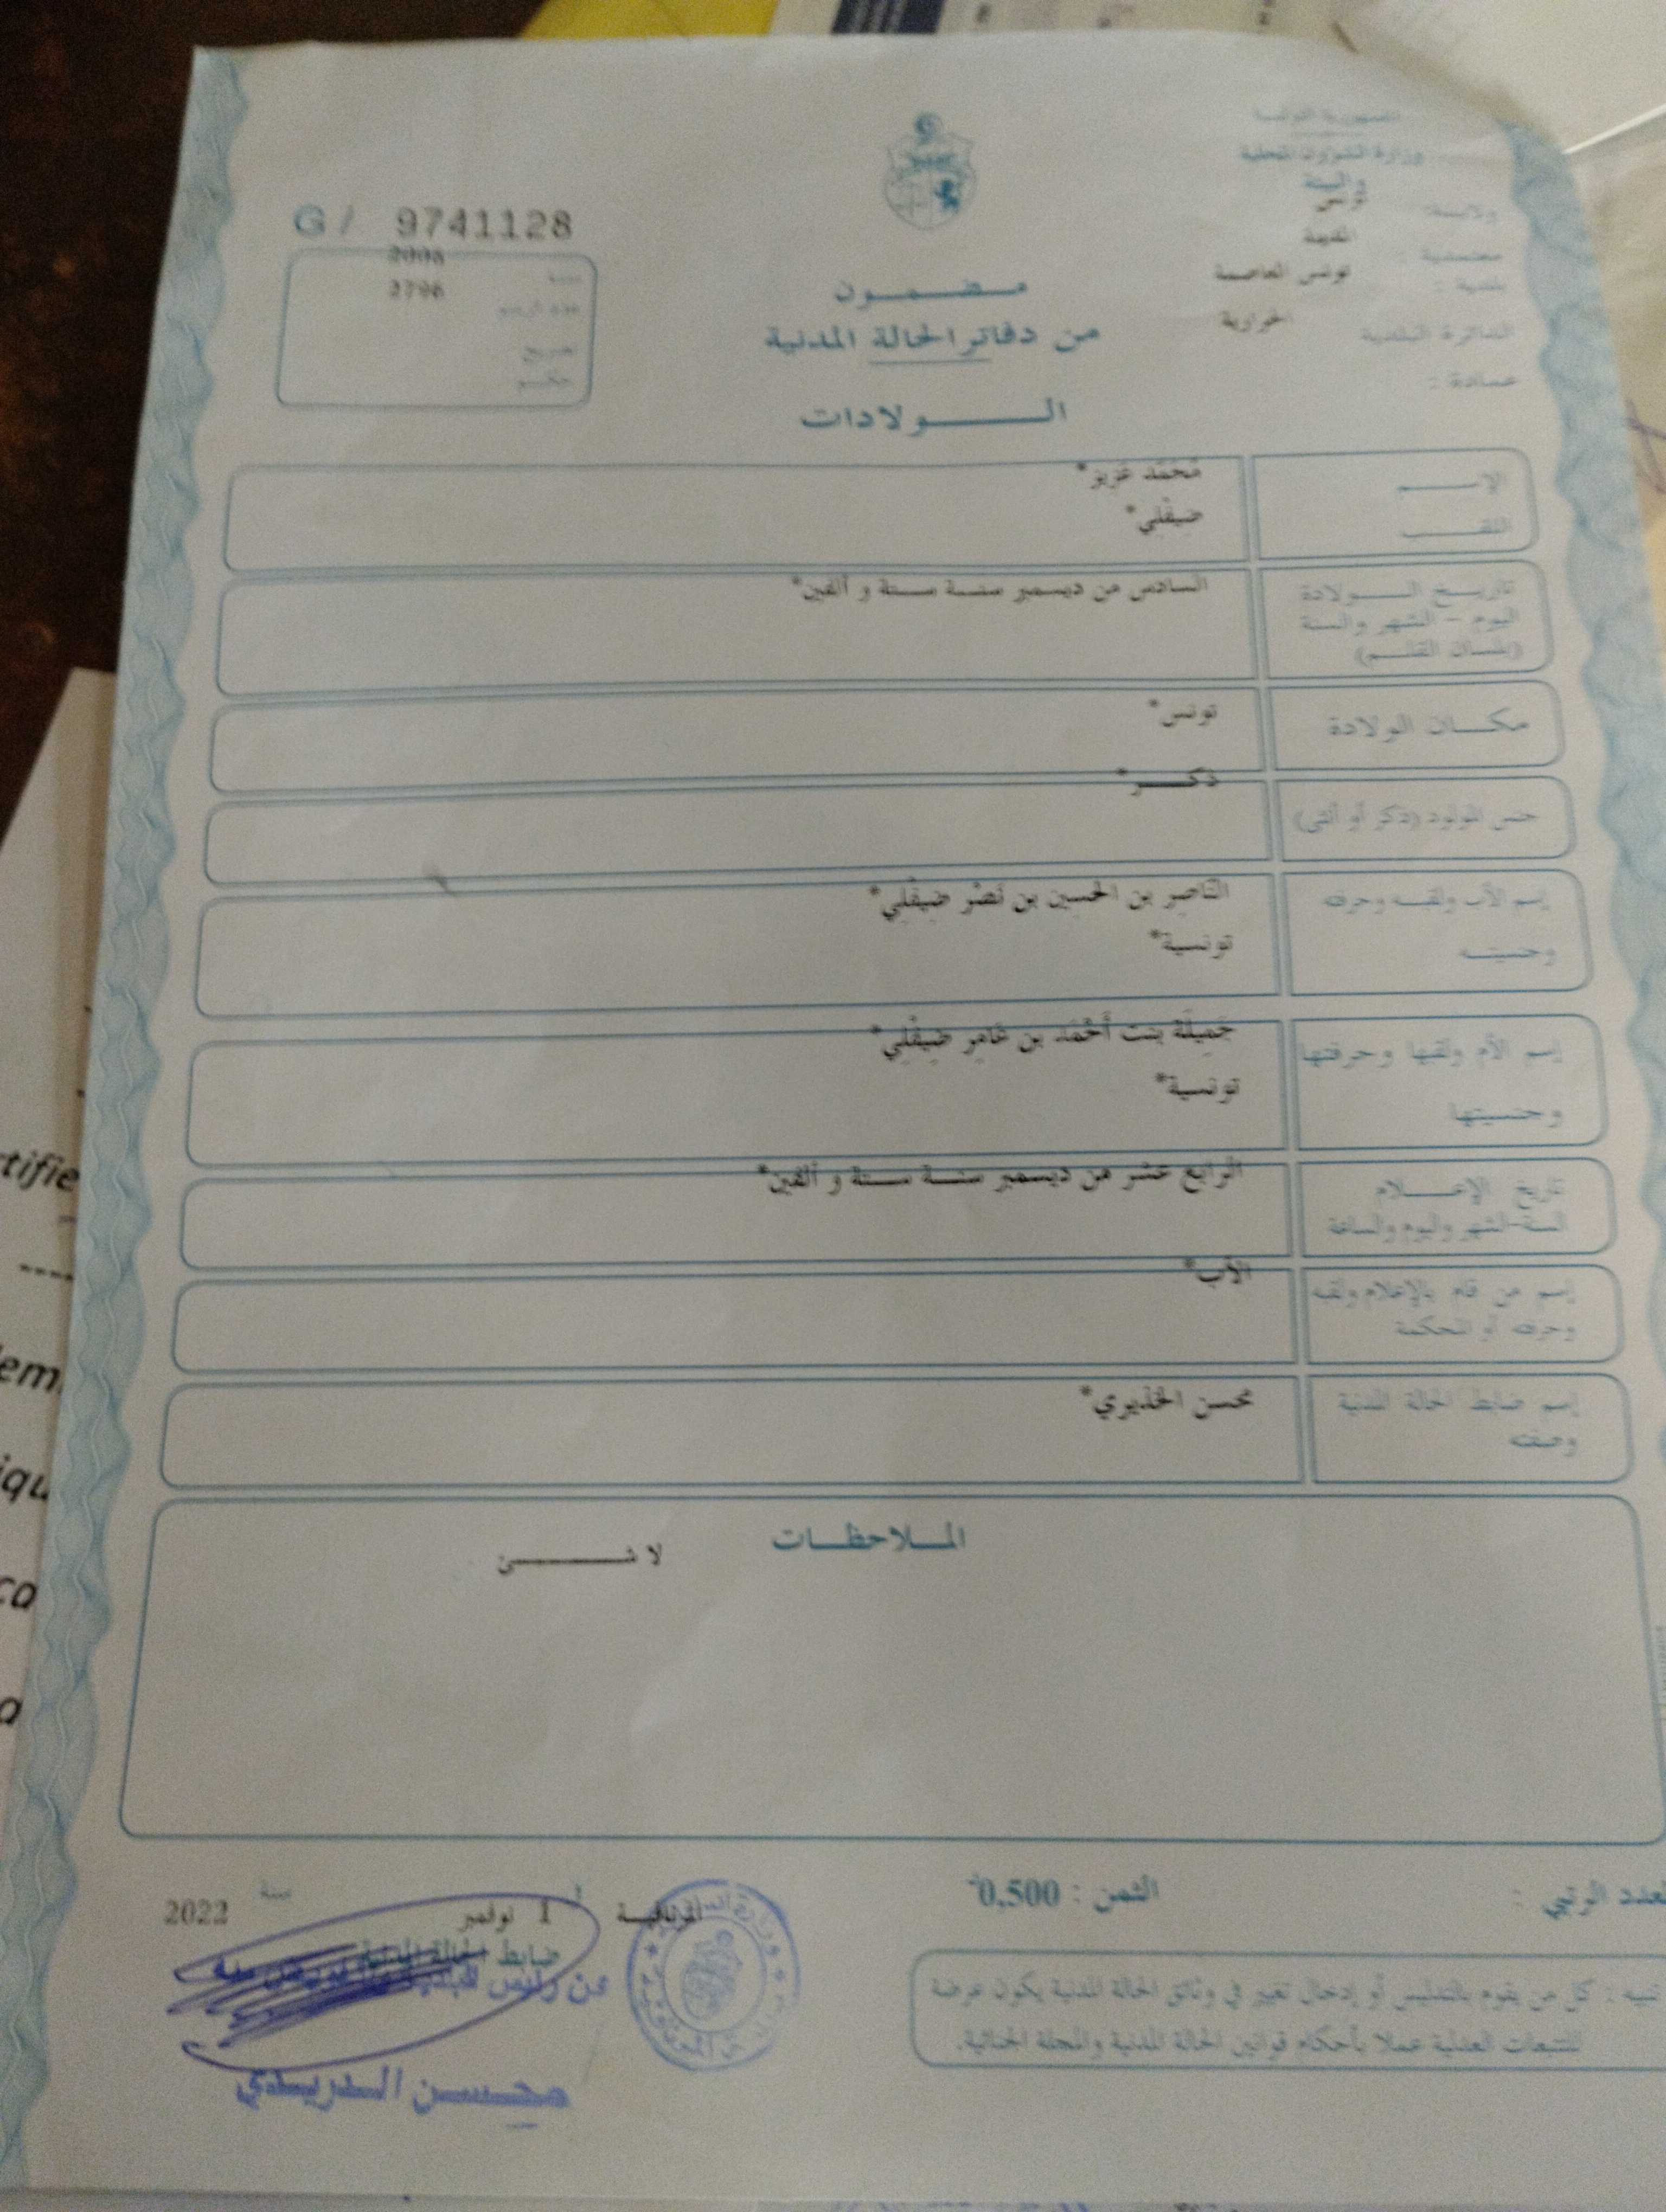 الجمهورية التونسية
وزارة الشؤون المحلية
والبيئة
ولاية: تونس
معتمدية : المدينة
بلدية : تونس العاصمة
الدائرة البلدية الحرايرية
عمادة :
G / 9741128
سنة 2006
عدد الرسم 2796
تصريح
حكم
مضمون
من دفاتر الحالة المدنية
الولادات
الإسم مُحَمَّد عَزِيز*
اللقب ضيفْلي*
تاريخ الولادة السادس من ديسمبر سنة ستة و ألفين*
اليوم – الشهر والسنة
(بلسان القلم)
مكان الولادة تونس*
جنس المولود (ذكر أو أنثى) ذكر*
إسم الأب ولقبه وحرفته النّاصِر بن الحسين بن نَصْر ضيفْلي*
وجنسيته تونسية*
إسم الأم ولقبها وحرفتها جَمِيلَة بنت أَحْمَد بن عَامِر ضيفْلِي*
وجنسيتها تونسية*
تاريخ الإعلام الرابع عشر من ديسمبر سنة ستة و ألفين*
السنة-الشهر واليوم والساعة
إسم من قام بالإعلام ولقبه الأب*
وحرفته أو المحكمة
إسم ضابط الحالة المدنية محسن الخذيري*
وصفته
الملاحظات
لا شئ
العدد الرتبي :
الثمن : 0,500
1 نوفمبر سنة 2022
ضابط الحالة المدنية
عن رئيس
محسن الدريدي
تنبيه : كل من يقوم بالتدليس أو إدخال تغيير في وثائق الحالة المدنية يكون عرضة
للتتبعات العدلية عملا بأحكام قوانين الحالة المدنية والمجلة الجنائية.